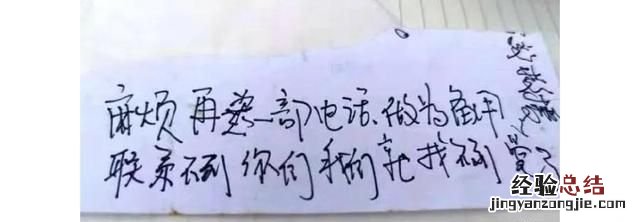 麻烦再装一部电话、做为备用
联系不到你们我们就找不到
经验总结
jingyanzongjie.com